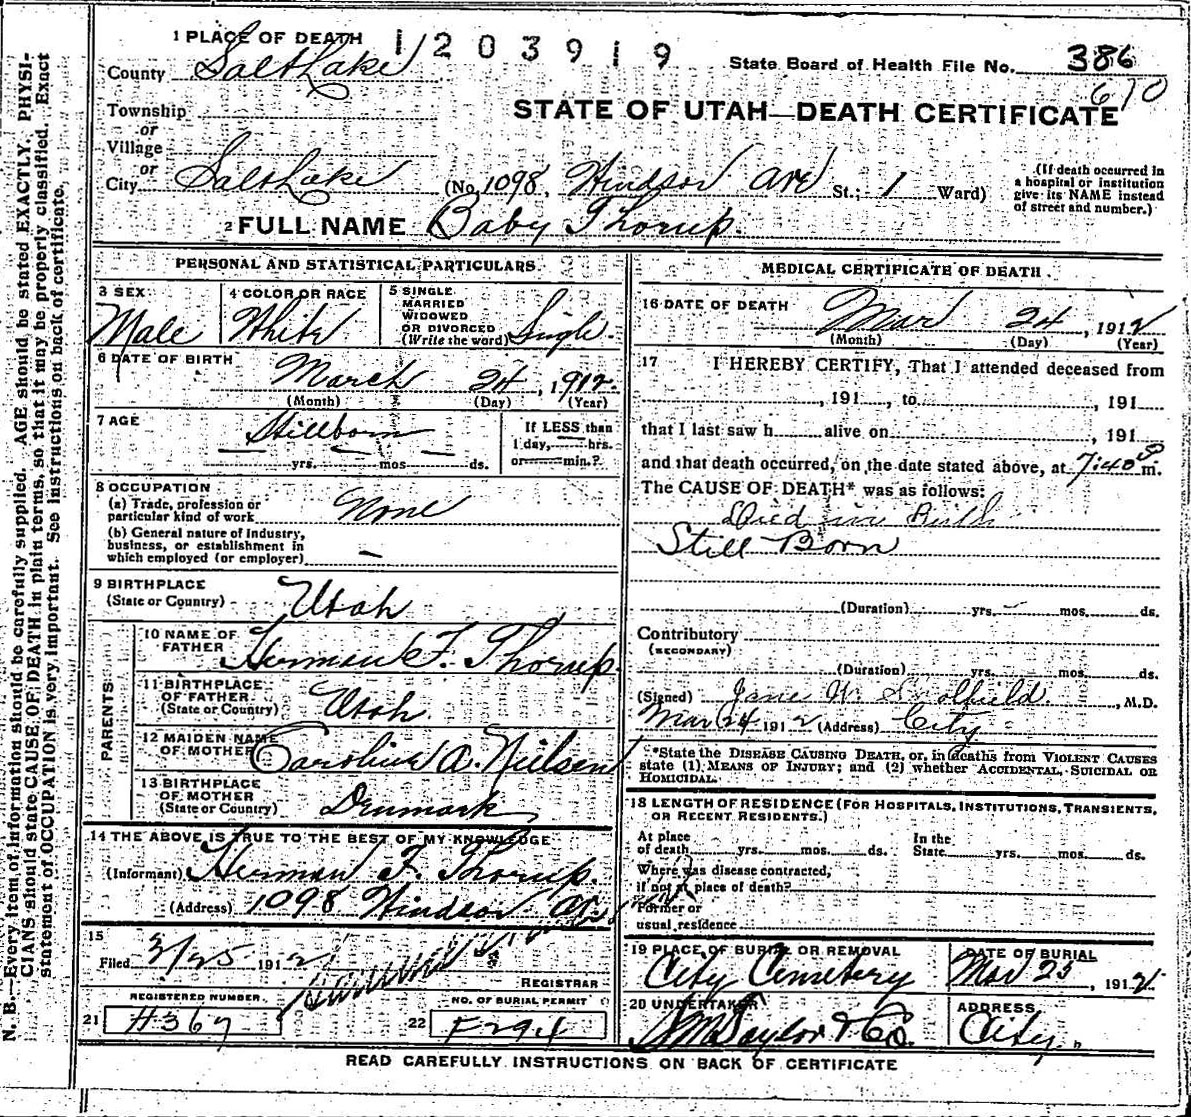 1 PLACE OF DEATH 1203919
County Salt Lake
State Board of Health File No. 386
670
Township
or
Village
or
STATE OF UTAH—DEATH CERTIFICATE
City Salt Lake (No. 1098 Windsor Ave St.; 1 Ward)
(If death occurred in
a hospital or institution
give its NAME instead
of street and number.)
2 FULL NAME Baby Thorup.
PERSONAL AND STATISTICAL PARTICULARS
3 SEX Male
4 COLOR OR RACE White
5 SINGLE
MARRIED
WIDOWED
OR DIVORCED
(Write the word) Single
6 DATE OF BIRTH
March 24, 1912.
(Month) (Day) (Year)
7 AGE
Stillborn
yrs. mos ds.
If LESS than
1 day, hrs.
or min.?
8 OCCUPATION
(a) Trade, profession or
particular kind of work None
(b) General nature of Industry,
business, or establishment in
which employed (or employer) —
9 BIRTHPLACE
(State or Country) Utah
PARENTS
10 NAME OF
FATHER Herman F. Thorup.
11 BIRTHPLACE
OF FATHER
(State or Country) Utah.
12 MAIDEN NAME
OF MOTHER Caroline A. Nielsen
13 BIRTHPLACE
OF MOTHER
(State or Country) Denmark
14 THE ABOVE IS TRUE TO THE BEST OF MY KNOWLEDGE
(Informant) Herman F. Thorup.
(Address) 1098 Windsor Av.
15
Filed 3/25 1912
REGISTRAR
REGISTERED NUMBER
21 H367
NO. OF BURIAL PERMIT
22 F294
MEDICAL CERTIFICATE OF DEATH
16 DATE OF DEATH
Mar 24, 1912
(Month) (Day) (Year)
17 I HEREBY CERTIFY, That I attended deceased from
, 191 , to , 191
that I last saw h alive on , 191
and that death occurred, on the date stated above, at 7:40 P m.
The CAUSE OF DEATH* was as follows:
Died in Birth
Still Born
(Duration) yrs. mos. ds.
Contributory
(SECONDARY)
(Duration) yrs. mos. ds.
(Signed) Jane W. Scolfield. , M.D.
Mar 24 1912 (Address) City
*State the DISEASE CAUSING DEATH, or, in deaths from VIOLENT CAUSES
state (1) MEANS OF INJURY; and (2) whether ACCIDENTAL, SUICIDAL OR
HOMICIDAL.
18 LENGTH OF RESIDENCE (FOR HOSPITALS, INSTITUTIONS, TRANSIENTS,
OR RECENT RESIDENTS.)
At place
of death yrs. mos. ds.
In the
State yrs. mos. ds.
Where was disease contracted,
if not at place of death?
Former or
usual residence
19 PLACE OF BURIAL OR REMOVAL
City Cemetery
DATE OF BURIAL
Mar 25, 1912.
20 UNDERTAKER
S.M. Taylor & Co.
ADDRESS
City.
READ CAREFULLY INSTRUCTIONS ON BACK OF CERTIFICATE
N. B.—Every item of information should be carefully supplied. AGE should be stated EXACTLY. PHYSI-
CIANS should state CAUSE OF DEATH in plain terms, so that it may be properly classified. Exact
statement of OCCUPATION is very important. See instructions on back of certificate.